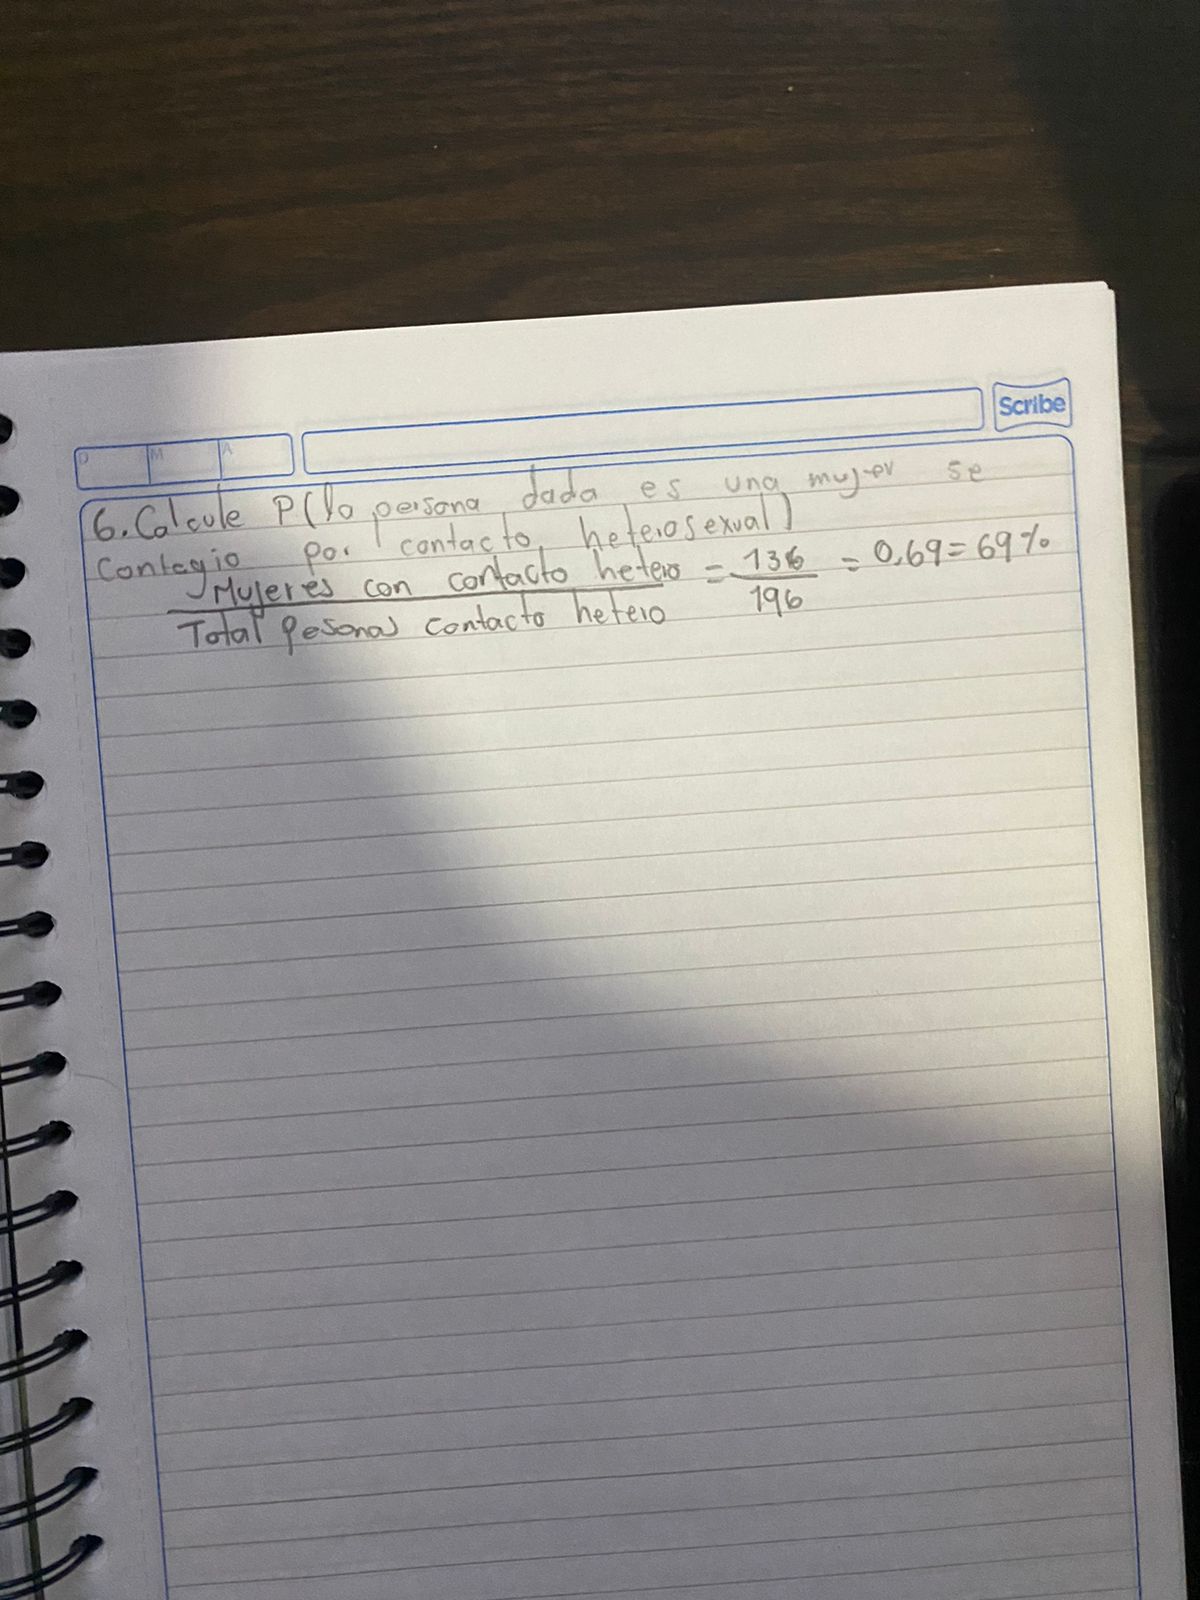 Scribe
D M A
6. Calcule P(la persona dada es una mujer se
contagio por contacto heterosexual)
Mujeres con contacto hetero = 136 = 0,69 = 69%
Total pesonas contacto hetero 196